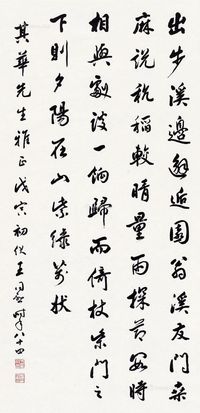 出步溪邊邂逅園翁溪友問桑
麻說秔稻較晴量雨探節數時
相與劇談一餉歸而倚杖柴門之
下則夕陽在山紫綠萬狀
其華先生雅正戊寅初伏王 八十四